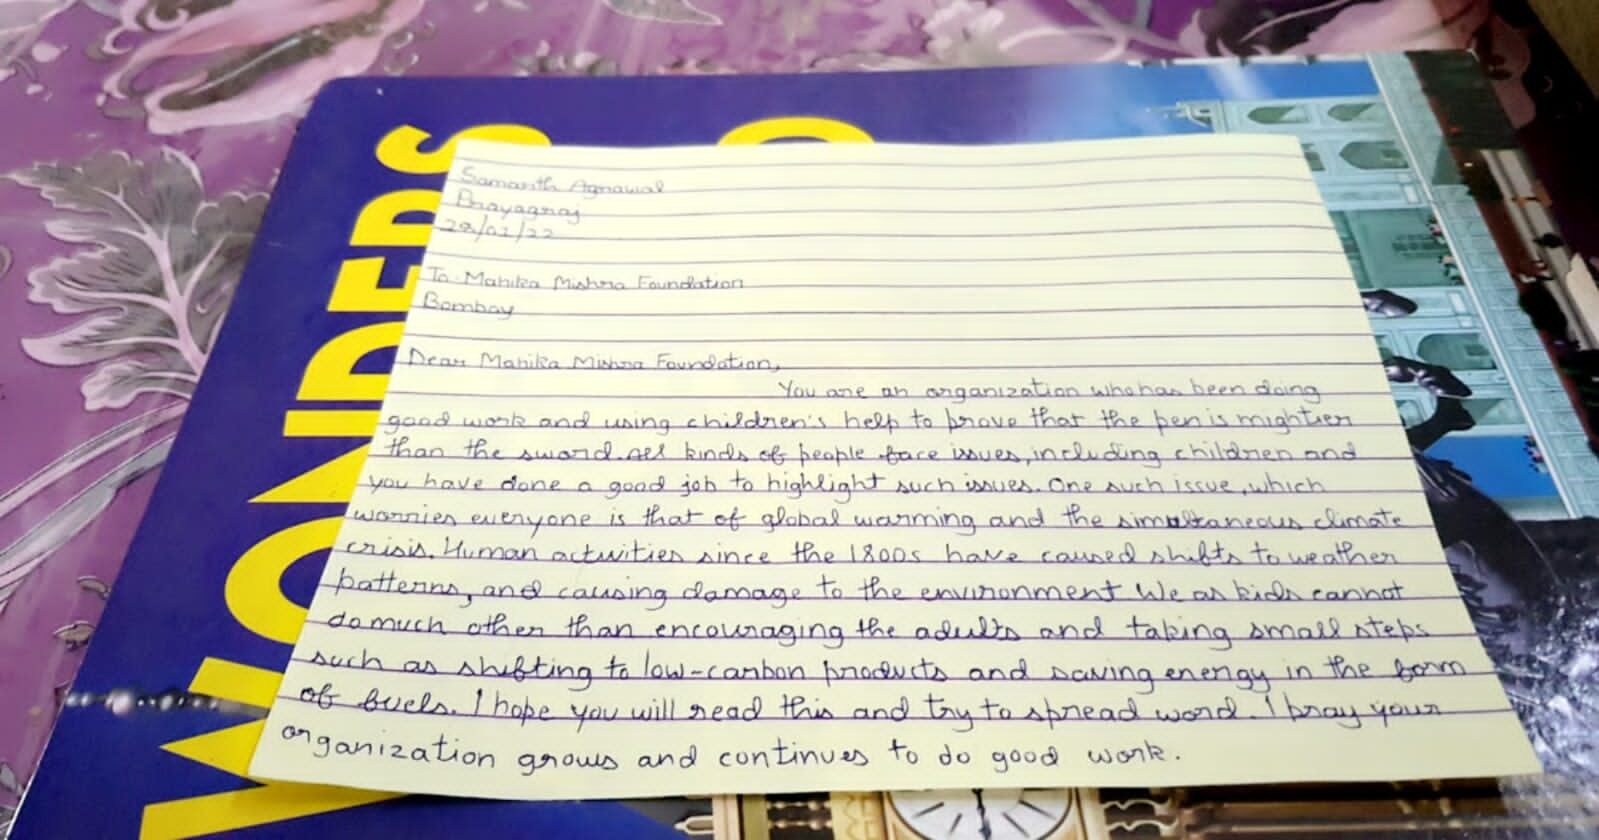 WONDERS
O
Samarth Agrawal
Prayagraj
29/01/22
To Mahika Mishra Foundation
Bombay
Dear Mahika Mishra Foundation,
You are an organization who has been doing
good work and using children's help to prove that the pen is mightier
than the sword. All kinds of people face issues, including children and
you have done a good job to highlight such issues. One such issue, which
worries everyone is that of global warming and the simultaneous climate
crisis. Human activities since the 1800s have caused shifts to weather
patterns, and causing damage to the environment We as kids cannot
do much other than encouraging the adults and taking small steps
such as shifting to low-carbon products and saving energy in the form
of fuels. I hope you will read this and try to spread word. I pray your
organization grows and continues to do good work.